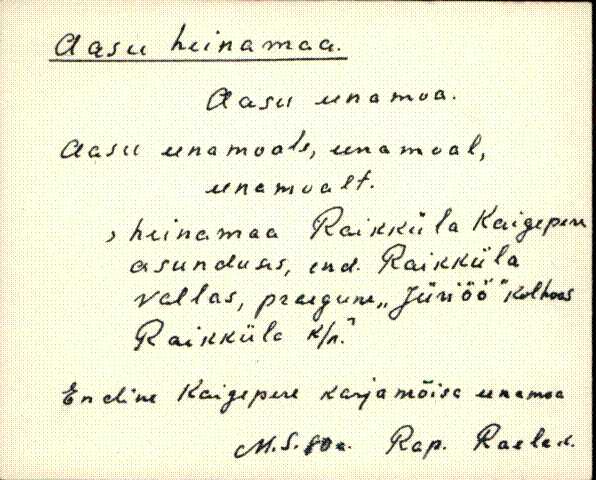 Aasu heinamaa.
Aasu unamoa.
Aasu unamoale, unamoal,
unamoalt.
, heinamaa Raikküla Kaigepere
asunduses, end. Raikküla
vallas, praegune „Jüriöö" kolhoos
Raikküla k/n."
Endine Kaigepere karjamõisa unamoa
M.S. 80a. Rap.